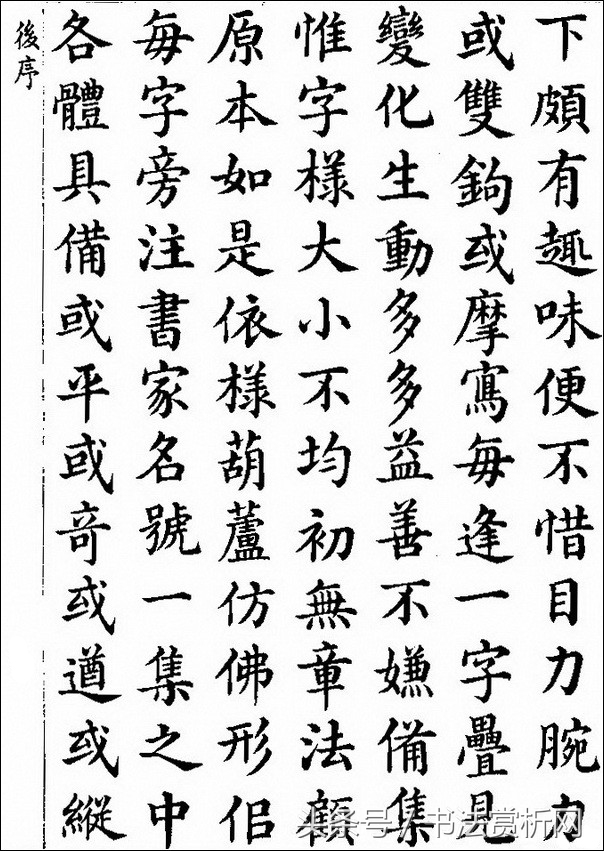 下頗有趣味便不惜目力腕力
或雙鉤或摩寫每逢一字疊見
變化生動多多益善不嫌備集
惟字樣大小不均初無章法顧
原本如是依樣葫蘆仿佛形佀
每字旁注書家名號一集之中
各體具備或平或竒或遒或縱
後序
头条号 / 书法赏析网